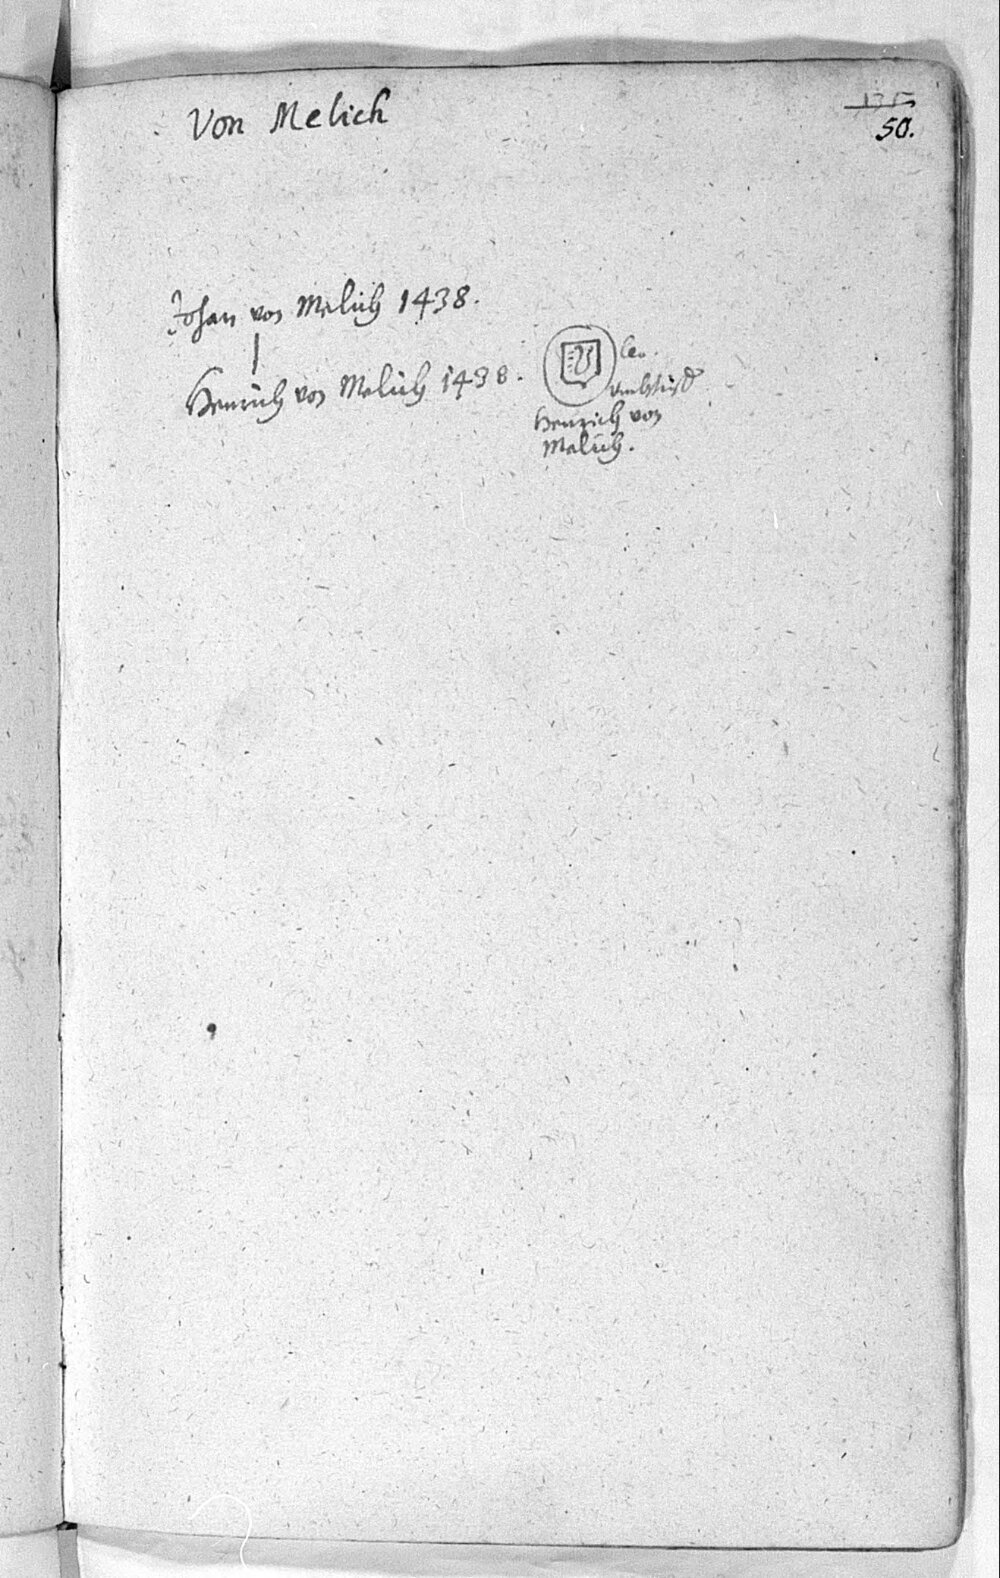 Von Melich
50.
Johan von Melich 1438.
Henrich von Melich 1438.
leo.
Henrich von
Melich.